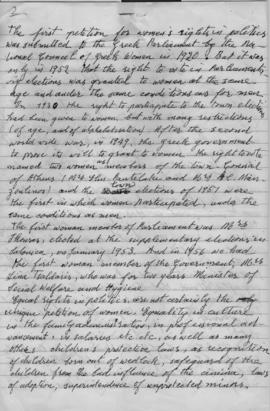 2
The first petition for women's rights in politics
was submitted to the Greek Parliament by the Na-
tional Council of Greek Women in 1920. But it was
only in 1952 that the right to vote in Parliamentary
elections was granted to women at the same
age and under the same conditions as for men.
In 1930 the right to participate to the town elections
had been given to women, but with many restrictions
(of age, and of alphabetisation) After the second
world wide war, in 1949, the greek government
to give it with to women. The right to vote
named two women as members of the town Council
of Athens (Mrs and Mrs
) and the town elections of 1951 were
the first in which women participated, under the
same conditions as men.
The first woman member of Parliament was Mrs
, elected at the supplementary elections in
Salonica, on January 1953. And in 1956 we had
the first woman member of the Government, Mrs
Lina Tsaldaris, who was for two years Minister of
Social Welfare and Hygiene
Equal rights in politics, were not certainly the
unique petition of women. Equality in culture
in the family administration, in professional ad-
vancement, in salaries etc etc, as well as many
others: children's protection laws, as recognition
of children born out of wedlock, safeguard of the
children from the bad influence of the cinema, laws
of adoption, superintendence of unprotected minors.